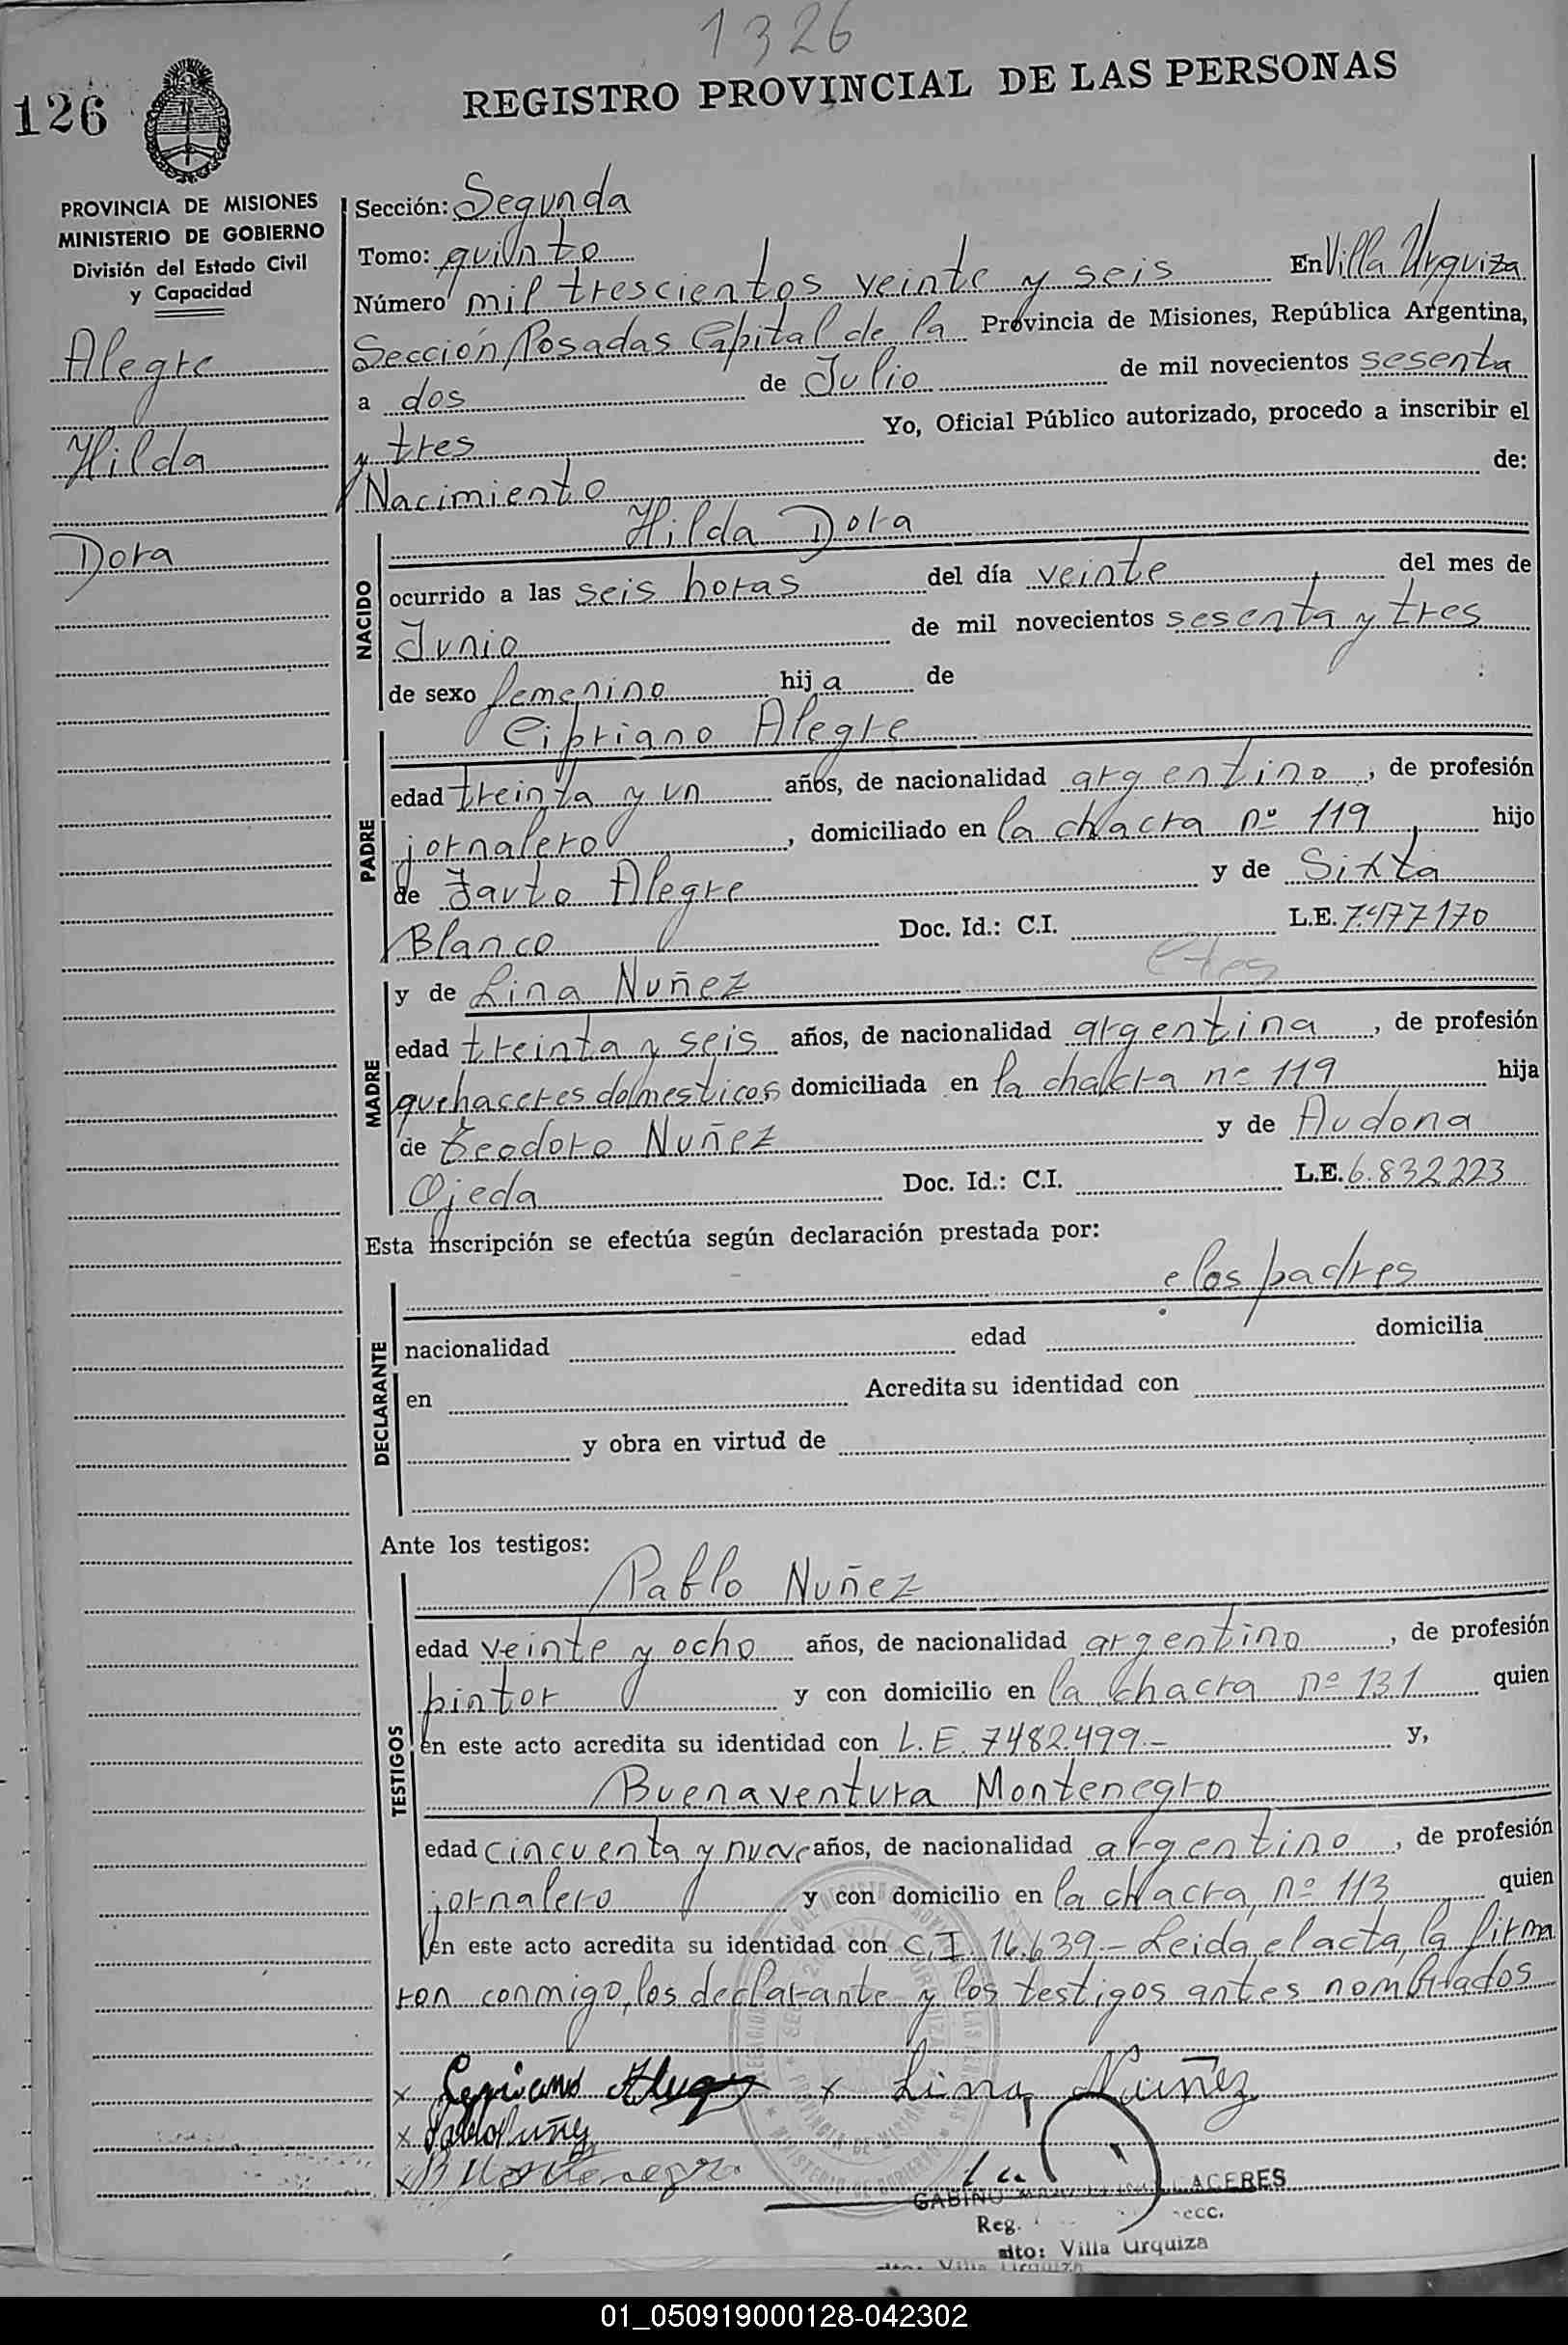 1326
126
REGISTRO PROVINCIAL DE LAS PERSONAS
PROVINCIA DE MISIONES
MINISTERIO DE GOBIERNO
División del Estado Civil
y Capacidad
Alegre
Hilda
Dora
Sección: Segunda
Tomo: quinto
Número mil trescientos veinte y seis En Villa Urquiza
Sección Posadas Capital de la Provincia de Misiones, República Argentina,
a dos de Julio de mil novecientos sesenta
y tres Yo, Oficial Público autorizado, procedo a inscribir el
Nacimiento de:
NACIDO
Hilda Dora
ocurrido a las seis horas del día veinte del mes de
Junio de mil novecientos sesenta y tres
de sexo femenino hija de
PADRE
Cipriano Alegre
edad treinta y un años, de nacionalidad argentino, de profesión
jornalero, domiciliado en la chacra nº 119 hijo
de Alegre y de Sixta
Blanco Doc. Id.: C.I. L.E. 7.477170
MADRE
y de Lina Nuñez
edad treinta y seis años, de nacionalidad argentina, de profesión
quehaceres domesticos domiciliada en la chacra nº 119 hija
de Teodoro Nuñez y de Audona
Ojeda Doc. Id.: C.I. L.E. 6.832.223
Esta inscripción se efectúa según declaración prestada por:
DECLARANTE
los padres
nacionalidad edad domicilia
en Acredita su identidad con
y obra en virtud de
Ante los testigos:
TESTIGOS
Pablo Nuñez
edad veinte y ocho años, de nacionalidad argentino, de profesión
pintor y con domicilio en la chacra nº 131 quien
en este acto acredita su identidad con L.E. 7482.499.- y,
Buenaventura Montenegro
edad cincuenta y nueve años, de nacionalidad argentino, de profesión
jornalero y con domicilio en la chacra nº 113 quien
en este acto acredita su identidad con C.I. 16.639.- Leida el acta, la firma
ron conmigo, los declarante y los testigos antes nombrados
x x Lina Nuñez
x Pablo Nuñez
x B Montenegro
GABINO CACERES
Reg. Secc.
Villa Urquiza
01_050919000128-042302